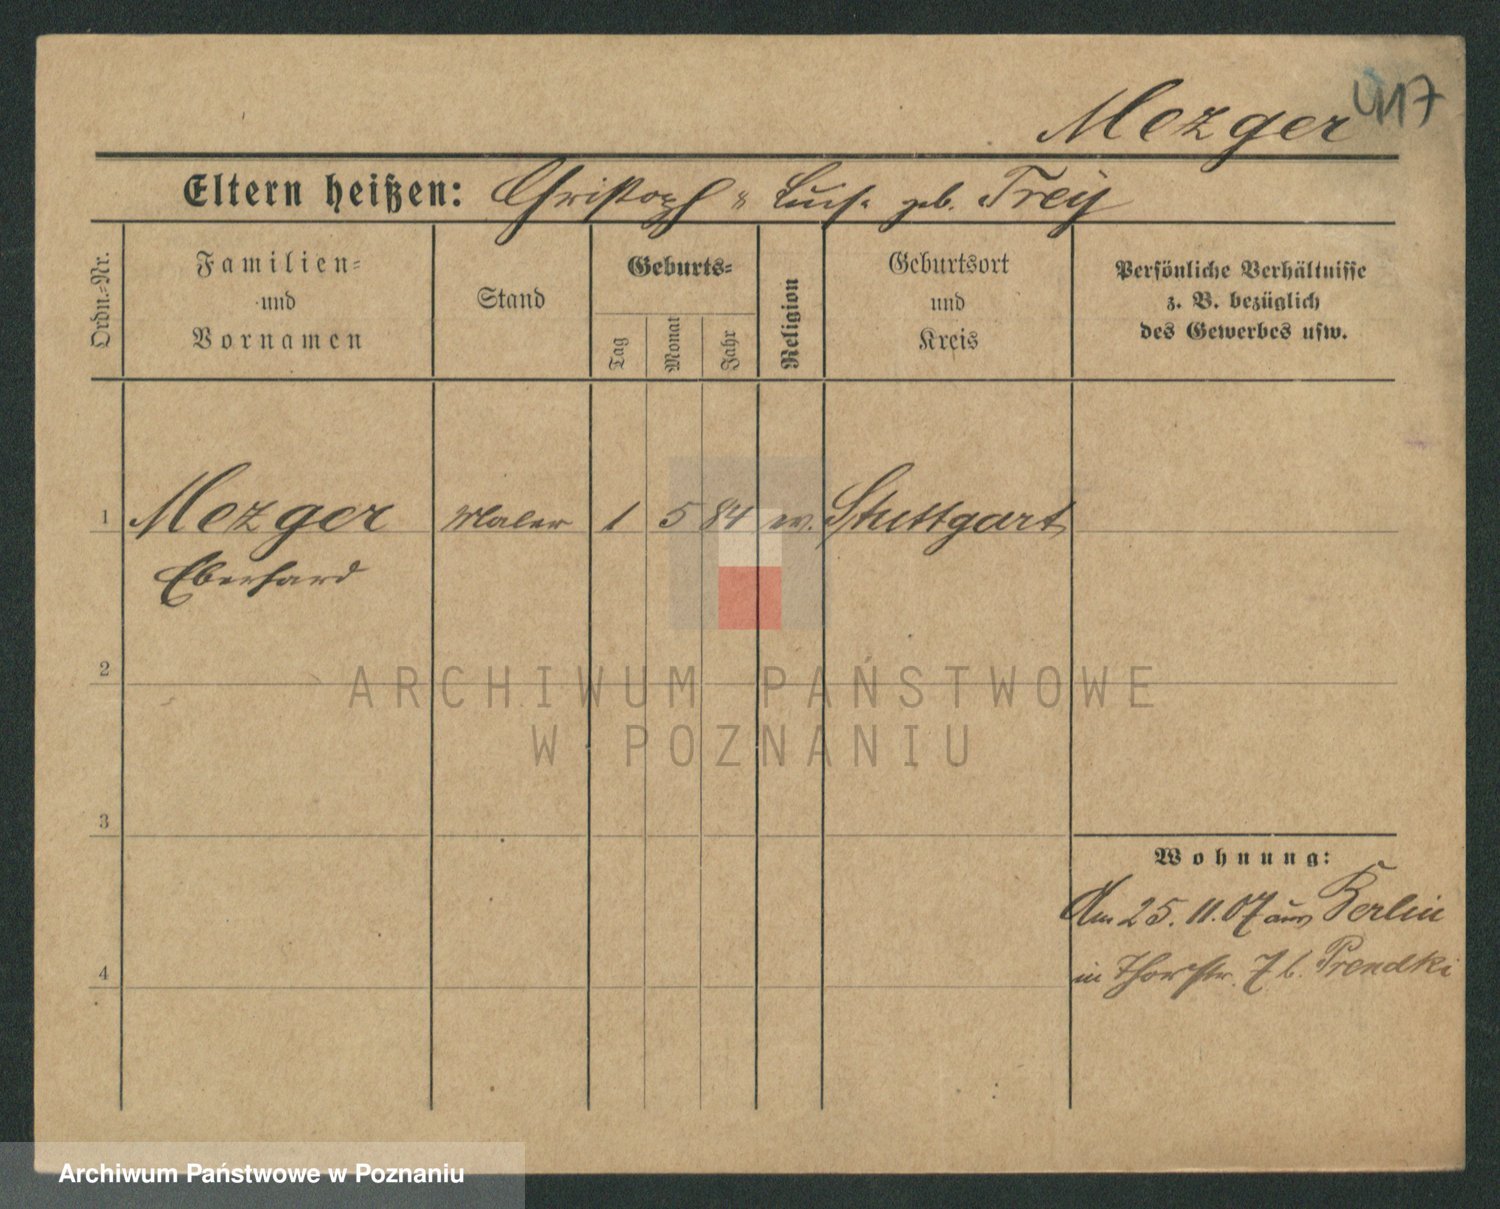 Mezger 417
Eltern heißen: Christoph u Luise geb. Frey
Ordn.-Nr.
Familien-
und
Vornamen
Stand
Geburts-
Tag
Monat
Jahr
Religion
Geburtsort
und
Kreis
Persönliche Verhältnisse
z. B. bezüglich
des Gewerbes usw.
1 Mezger Maler 1 5 84 ev. Stuttgart
Eberhard
2
ARCHIWUM PAŃSTWOWE
W POZNANIU
3
Wohnung:
Am 25.11.07 aus Berlin
4
in 7 b. Prendki
Archiwum Państwowe w Poznaniu